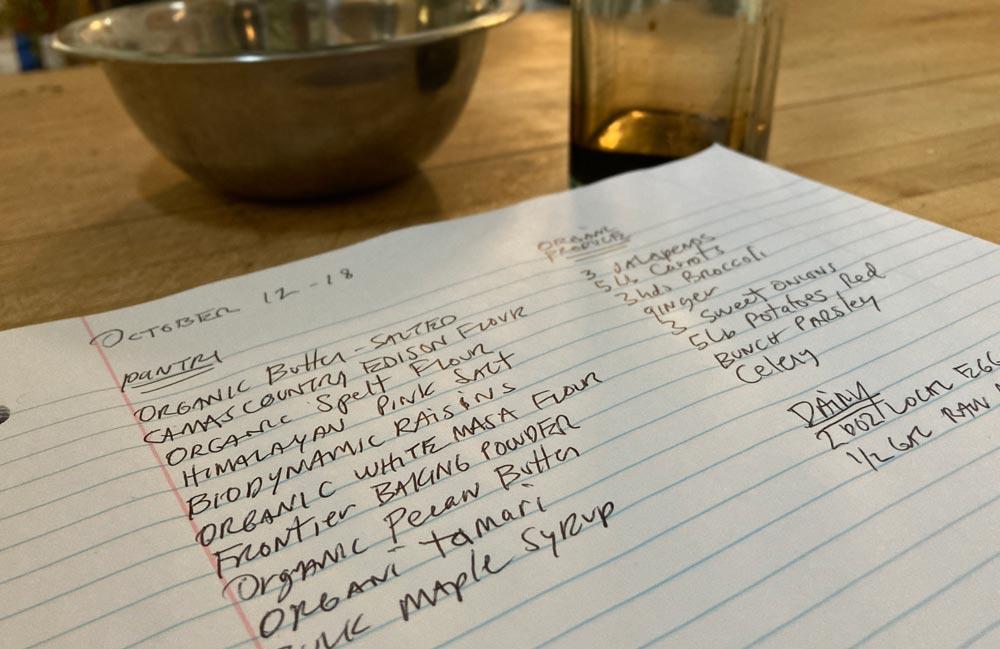 OCTOBER 12-18
PANTRY
ORGANIC Butter-SALTED
CAMAS COUNTRY EDISON FLOUR
ORGANIC Spelt Flour
HIMALAYAN PINK SALT
BIODYNAMIC RAISINS
ORGANIC WHITE MASA FLOUR
Frontier BAKING POWDER
Organic Pecan Butter
ORGANI- tamari
MAPLE SYRUP
ORGANIC
PRODUCE
3 JALApenos
5 Lb Carrots
3 hds Broccoli
gINger
3 Sweet ONIONS
5Lb Potatoes Red
BUNCH PARSLEY
Celery
DAIRY
2 DOZ LOCAL EGG
1/2 GAL RAW